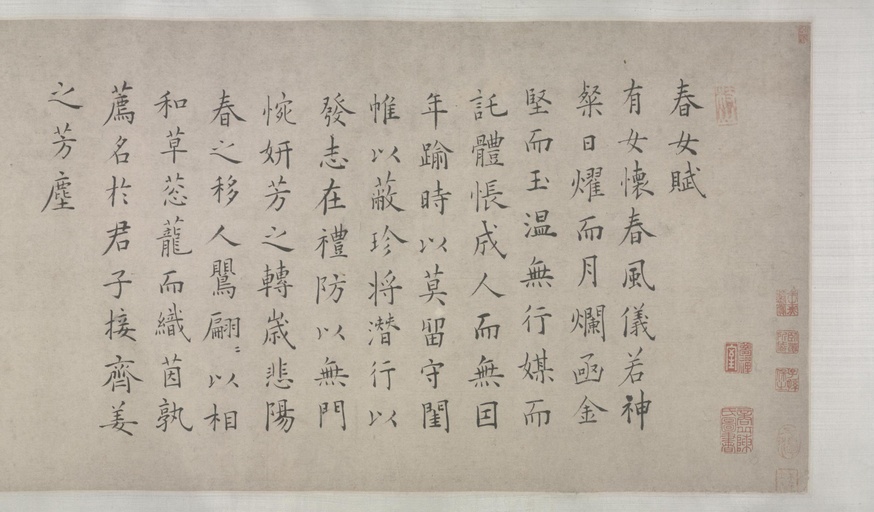 春女賦
有女懷春風儀若神
粲日燿而月爛函金
堅而玉温無行媒而
託體悵成人而無因
年踰時以莫留守閨
帷以蔽珍将潛行以
發志在禮防以無門
惋妍芳之轉歲悲陽
春之移人鷪翩〻以相
和草蒊蘢而織茵孰
薦名於君子接齊姜
之芳塵